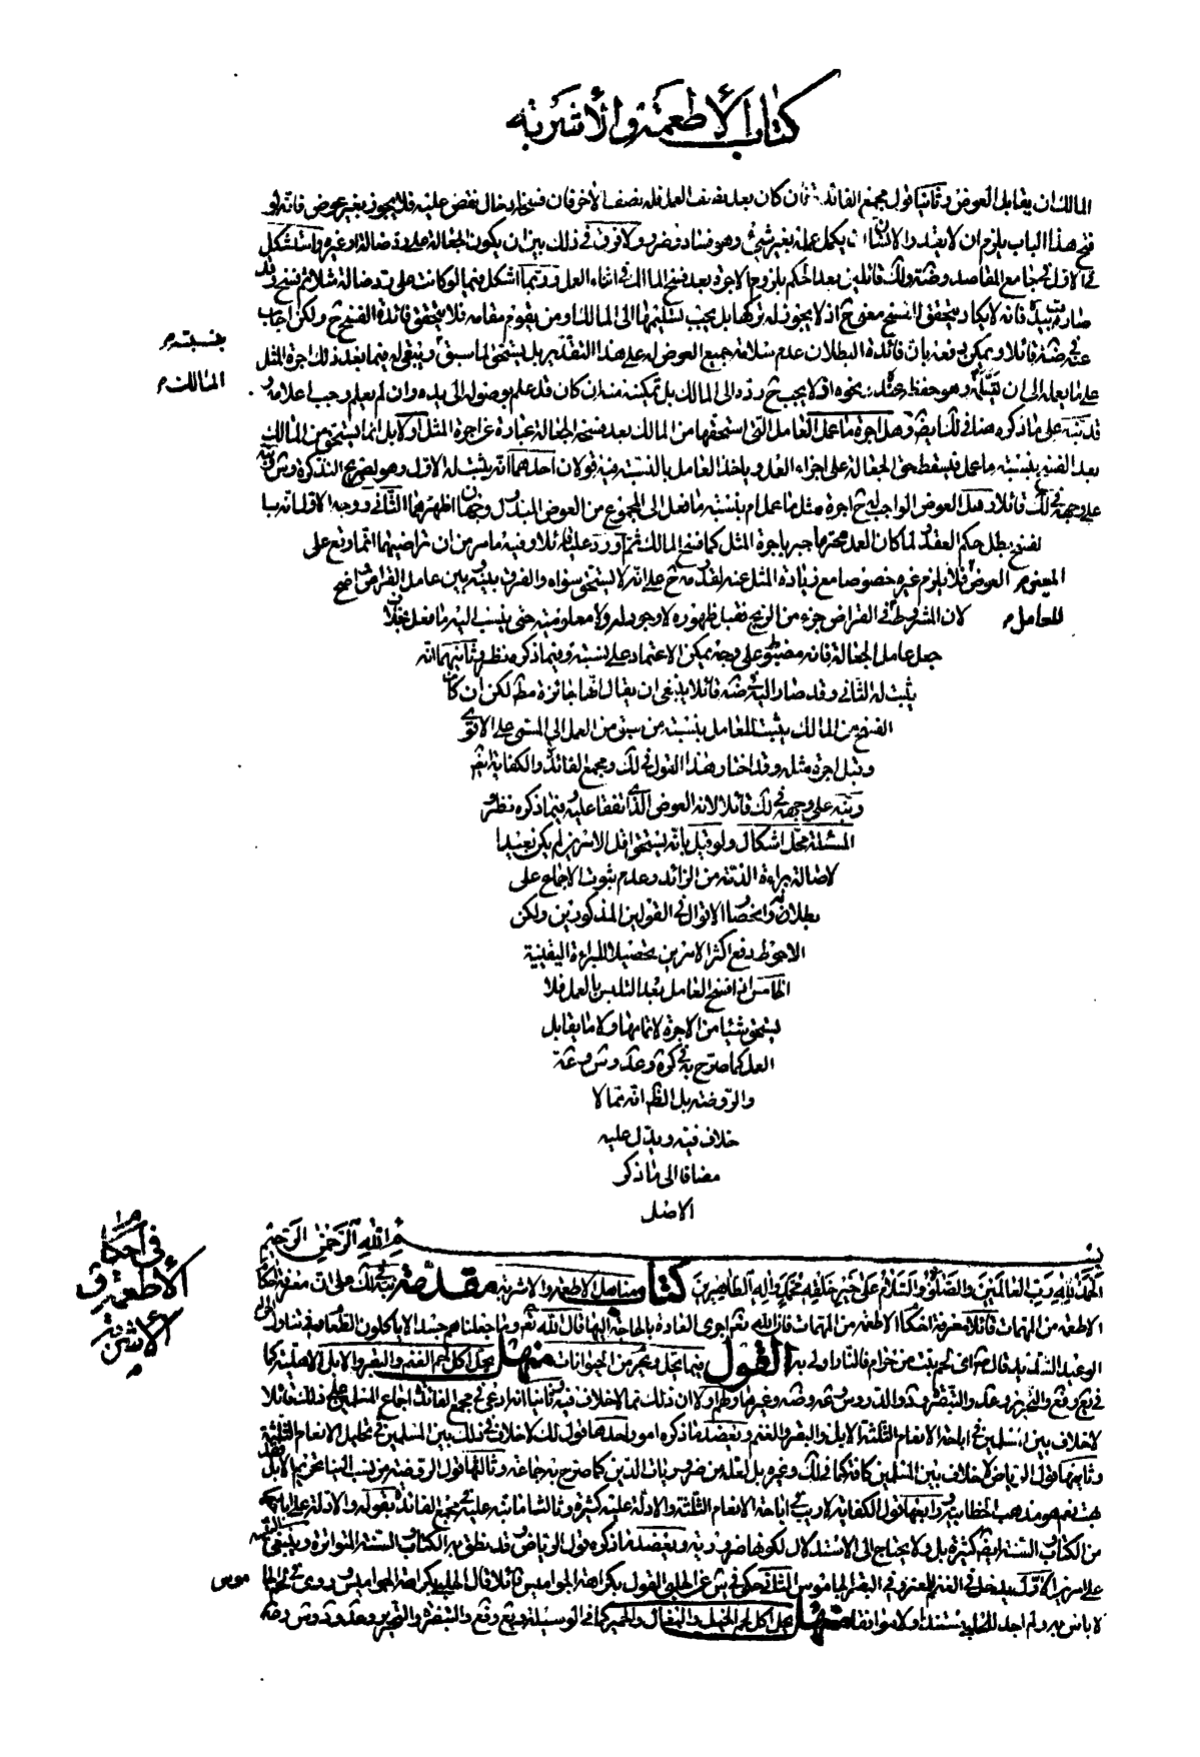 كتاب الأطعمة والأشربة
المالك ان يقابل العوض وثانيا قول مجمع الفائدة فان كان بعد نصف العمل فله نصف الأخر فان فسخ ادخال نقص عليه فلا يجوز بغير عوض فانه لو
فتح هذا الباب يلزم ان لا يكمل عمله بغير شيء وهو فساد وضرر ولا فرق في ذلك بين ان يكون الجعالة على رد ضالة او غيره واستشكل
في الاول في جامع المقاصد قائلين بعد الحكم بلزوم الاجرة بعد فسخ المالك في اثناء العمل وربما اشكل فيما لو كانت على رد ضالة مثلا ثم فسخ وقد
صارت بيده فانه لا يكاد يتحقق للفسخ معنى ح اذ لا يجوز له تركها بل يجب تسليمها الى المالك او من يقوم مقامه فلا يتحقق فائدة الفسخ ح ولكن اجاب
عنه في ضه قائلا ويمكن دفعه بان فائدة البطلان عدم سلامة جميع العوض له على هذا التقدير بل يستحق لما سبق ويبقى له فيما بعد ذلك اجرة المثل
بنسبته م
المالك م
على ما يعمله الى ان يتسلمه وهو حفظه عنده ونحوه اذ لا يجب ح رده الى المالك بل تمكينه منه ان كان قد علم بوصوله الى يده وان لم يعلم وجب اعلامه
قد نبه على ما ذكره هنا في لك ايضا وهل اجرة ما عمل العامل التي استحقها من المالك بعد فسخه الجعالة عبارة عن اجرة المثل او لا بل انما يستحق من المالك
بعد الفسخ بنسبة ما عمل فيسقط حق الجعالة على اجزاء العمل وياخذ العامل بالنسبة فيه قولان احدهما انه يثبت له الاول وهو لصريح التذكرة
على وجهه في لك قائلا وهل العوض الواجب له ح اجرة مثل ما عمل ام بنسبة ما فعل الى المجموع من العوض المبذول وجهان اظهرهما الثاني ووجه الاول انه بـا
لفسخ بطل حكم العقد ولما كان العمل محترما جبر باجرة المثل كما فسخ المالك ثم اورد عليه قائلا وفيه ما مر من ان تراضيهما انما وقع على
المعنوم العوض فلا يلزم غيره خصوصا مع زيادة المثل عنه لقدومه ح على انه لا يستحق سواه والفرق بينه وبين عامل القراض واضح
للعامل م
لان المشروط في القراض جزء من الربح فقبل ظهوره لا وجود له ولا معلومية حتى ينسب اليه ما فعل بخلاف
جعل عامل الجعالة فانه مضبوط على وجه يمكن الاعتماد على نسبته وفيما ذكره نظر وثانيهما انه
يثبت له الثاني وقد صار اليه ضه قائلا ينبغي ان يقال انها جائزة مطلقا لكن ان كان
الفسخ من المالك يثبت للعامل بنسبة من سبق من العمل الى المسمى على الاقوى
وقيل اجرة مثله وقد اختار هذا القول في لك ومجمع الفائدة والكفاية ايضا
ونبه على وجهه في لك قائلا لانه العوض الذي اتفقا عليه وفيما ذكره نظر و
المسئلة محل اشكال ولو قيل بانه يستحق اقل الامرين لم يكن بعيدا
لاصالة براءة الذمة من الزائد وعدم ثبوت الاجماع على
بطلانه وانحصار الاقوال في القولين المذكورين ولكن
الاحوط دفع اكثر الامرين تحصيلا للبراءة اليقينية
الخامس اذا فسخ العامل بعد التلبس بالعمل فلا
يستحق شيئا من الاجرة لا تمامها ولا ما يقابل
العمل كما صرح به في كرة وعد وس وضه
والروضة بل الظ انه مما لا
خلاف فيه ويدل عليه
مضافا الى ما ذكر
الاصل
بسم الله الرحمن الرحيم
في احكام
الأطعمة و
الأشربة
م
الحمد لله رب العالمين والصلوة والسلام على خير خلقه محمد واله الطاهرين كتاب مناهل الاطعمه والاشربة مقدمة نبه في لك على ان معرفة احكام
الاطعمه من المهمات قائلا معرفة احكام الاطعمه من المهمات فان الله تعم اجرى العادة بالحاجة اليها قال الله تعم وما جعلناهم جسدا لا ياكلون الطعام وفي تناول الحرام
الوعيد الشديد قال ص اي لحم نبت من حرام فالنار اولى به القول فيما يحل ويحرم من الحيوانات منهل يحل اكل لحم الغنم والبقر والابل الاهلية كما
في يع وفع والتحرير وعد والتبصرة ود والدروس وضه وغيرها ولهم اولا ان ذلك مما لا خلاف فيه وثانيا انه ادعى في مجمع الفائدة اجماع المسلمين على ذلك قائلا
لا خلاف بين المسلمين في اباحة الانعام الثلثة الابل والبقر والغنم ويعضد ما ذكره امور احدها قول لك لا خلاف في ذلك بين المسلمين في تحليل الانعام الثلثة
وثانيها قول الرياض لا خلاف بين المسلمين كافة كما في لك وغيره بل لعله من ضروريات الدين كما صرح به جماعة وثالثها قول الروضة من نسب الينا تحريم الابل فقد
بهت نعم هو مذهب الخطابية ورابعها قول الكفاية لا ريب في اباحة الانعام الثلثة والادلة عليه كثيرة وثالثا ما نبه عليه في مجمع الفائدة بقوله والادلة على اباحته
من الكتاب والسنة ايضا كثيرة بل ولا يحتاج الى الاستدلال لكونها ضرورية ويعضد ما ذكره قول الرياض قد نطق به الكتاب والسنة المتواترة وينبغي التنبيه
على امرين الاول يدخل في الغنم المعز وفي البقر الجاموس الثاني حكى في ش عن الحلبي القول بكراهة الجواميس قائلا قال الحلبي بكراهة الجواميس وروى في لحمها
موس
لا باس به ولم اجد للحلبي مستندا ولا موافقا منهل يحل اكل لحم الخيل والبغال والحمير كما في الوسيلة ويع وفع والتبصرة والتحرير وعد ود وس وضه